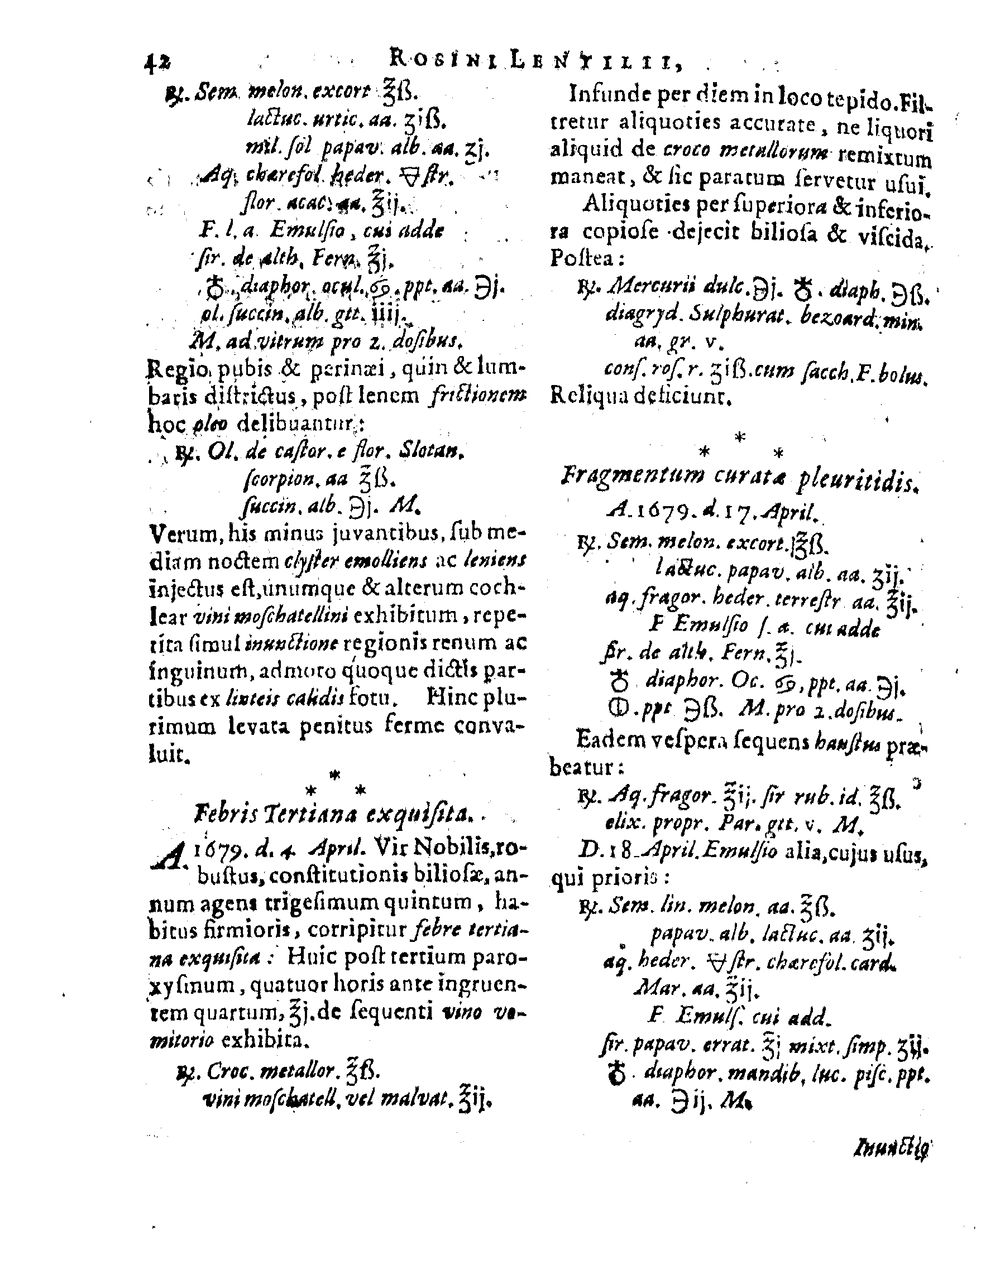 42 ROSINI LENTILII,
℞. Sem. melon. excort ℥ß.
lactuc. urtic. aa. ʒiß.
mil. ſol papav. alb. aa. ʒj.
Aq. chærefol. heder. 🜃ſtr.
flor. acac. aa. ℥ij.
F. l. a. Emulſio, cui adde
ſir. de alth. Fern. ℥j.
♁. diaphor. ocul. ♋. ppt. aa. ℈j.
ol. ſuccin. alb. gtt. iiij.
M. ad vitrum pro 2. doſibus.
Regio pubis & perinæi, quin & lum-
baris diſtrictus, poſt lenem frictionem
hoc oleo delibuantur:
℞. Ol. de caſtor. e flor. Slotan.
ſcorpion. aa ℥ß.
ſuccin. alb. ℈j. M.
Verum, his minus juvantibus, ſub me-
diam noctem clyſter emolliens ac leniens
injectus eſt, unumque & alterum coch-
lear vini moſchatellini exhibitum, repe-
tita ſimul inunctione regionis renum ac
inguinum, admoto quoque dictis par-
tibus ex linteis calidis fotu. Hinc plu-
rimum levata penitus ferme conva-
luit.
*
* *
Febris Tertiana exquiſita.
A. 1679. d. 4. April. Vir Nobilis, ro-
buſtus, conſtitutionis bilioſæ, an-
num agens trigeſimum quintum, ha-
bitus firmioris, corripitur febre tertia-
na exquiſita: Huic poſt tertium paro-
xyſinum, quatuor horis ante ingruen-
tem quartum, ℥j. de ſequenti vino vo-
mitorio exhibita.
℞. Croc. metallor. ℥ß.
vini moſchatell. vel malvat. ℥ij.
Infunde per diem in loco tepido. Fil-
tretur aliquoties accurate, ne liquori
aliquid de croco metallorum remixtum
maneat, & ſic paratum ſervetur uſui.
Aliquoties per ſuperiora & inferio-
ra copioſe dejecit bilioſa & viſcida.
Poſtea:
℞. Mercurii dulc. ℈j. ♁. diaph. ℈ß.
diagryd. Sulphurat. bezoard. min.
aa. gr. v.
conſ. roſ. r. ʒiß. cum ſacch. F. bolus.
Reliqua deficiunt.
*
* *
Fragmentum curatæ pleuritidis.
A. 1679. d. 17. April.
℞. Sem. melon. excort. ℥ß.
lactuc. papav. alb. aa. ʒij.
aq. fragor. heder. terreſtr aa. ℥ij.
F Emulſio ſ. a. cui adde
ſir. de alth. Fern. ℥j.
♁ diaphor. Oc. ♋, ppt. aa. ℈j.
🜕. ppt ℈ß. M. pro 2. doſibus.
Eadem veſpera ſequens hauſtus præ-
beatur:
℞. Aq. fragor. ℥ij. ſir rub. id. ℥ß.
elix. propr. Par. gtt. v. M.
D. 18. April. Emulſio alia, cujus uſus,
qui prioris:
℞. Sem. lin. melon. aa. ℥ß.
papav. alb. lactuc. aa. ʒij.
aq. heder. 🜃ſtr. chærefol. card.
Mar. aa. ℥ij.
F. Emulſ. cui add.
ſir. papav. errat. ℥j mixt. ſimp. ʒij.
♁. diaphor. mandib. luc. piſc. ppt.
aa. ℈ij. M.
Inunctio